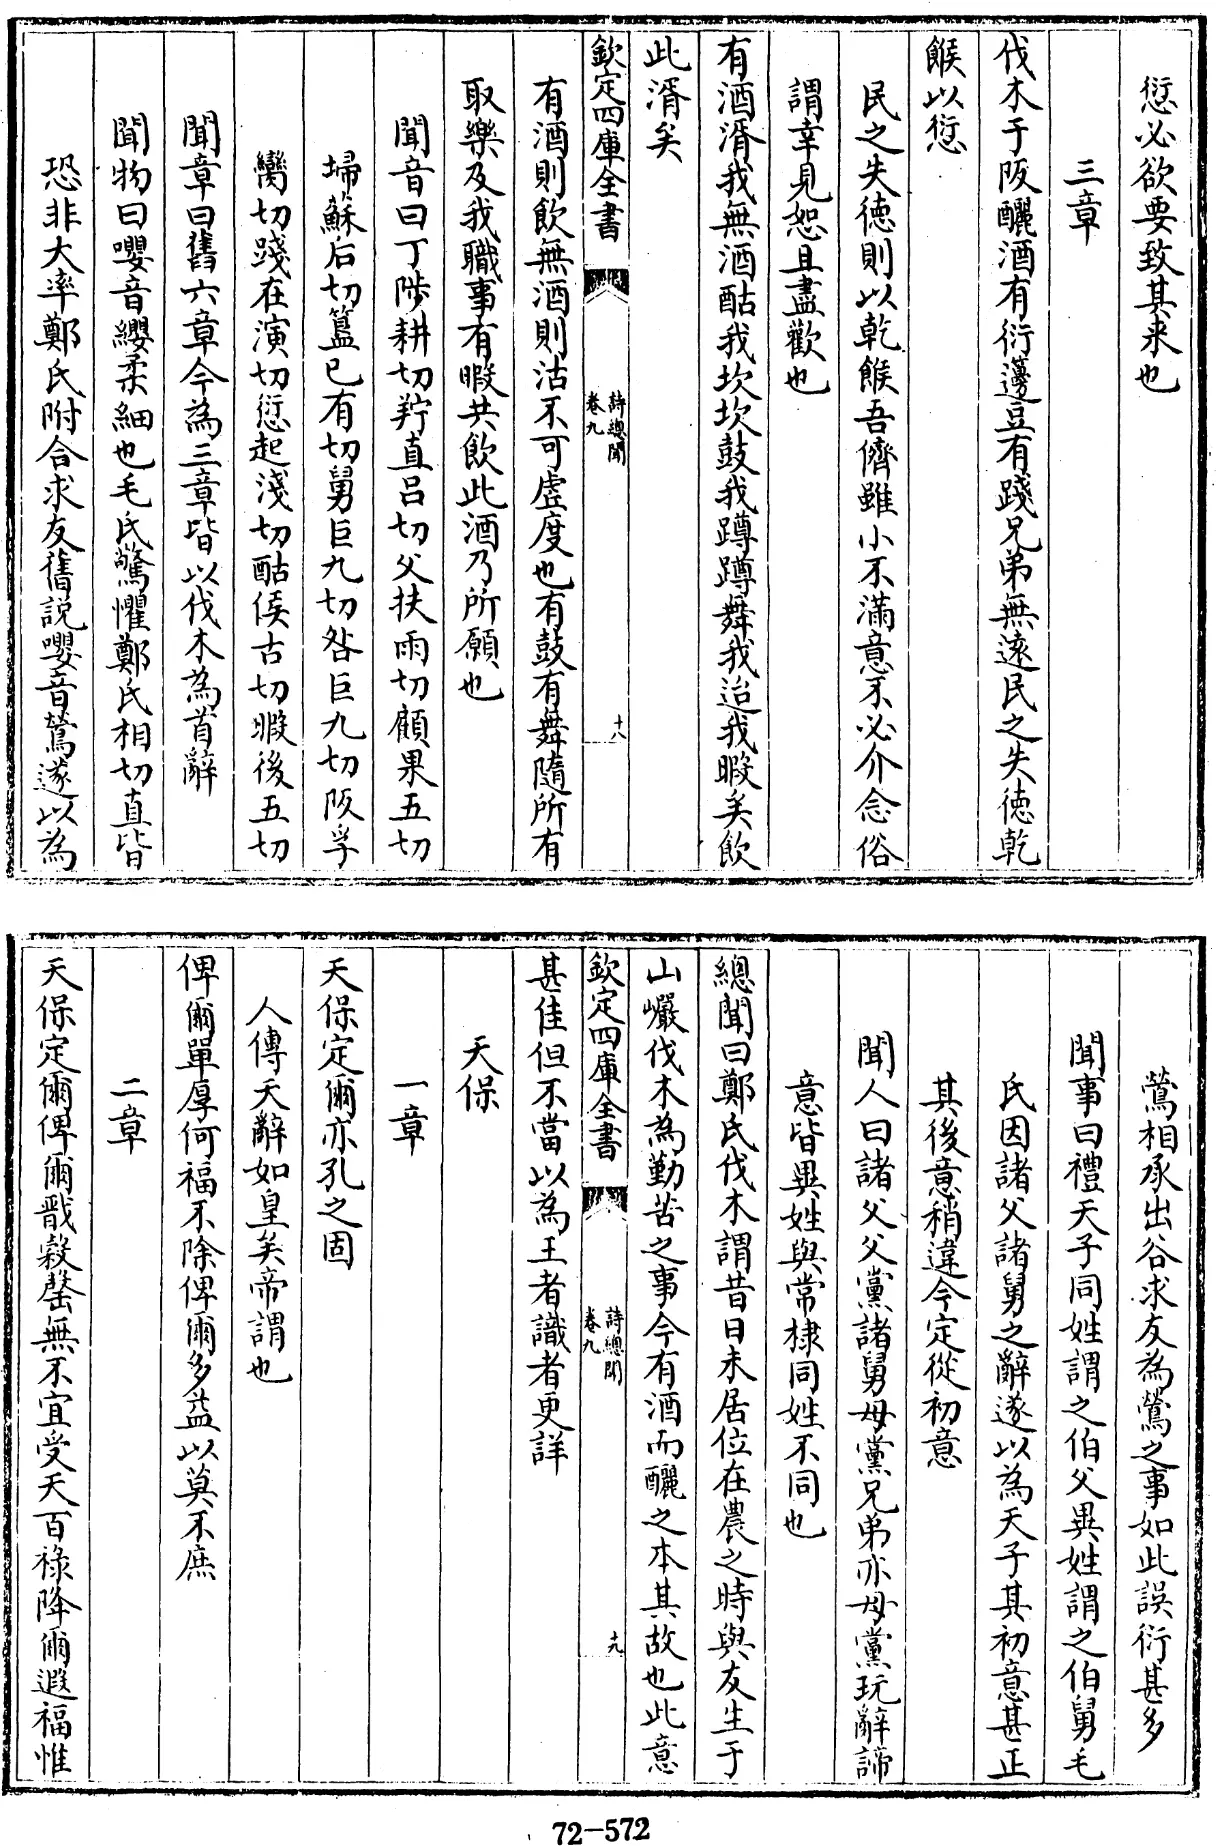 愆必欲要致其来也
三章
伐木于阪釃酒有衍籩豆有踐兄弟無逺民之失徳乾
餱以愆
民之失徳則以乾餱吾儕雖小不滿意不必介念俗
謂幸見恕且盡歡也
有酒湑我無酒酤我坎坎鼓我蹲蹲舞我迨我暇矣飲
此湑矣
欽定四庫全書
詩總聞
卷九
十八
有酒則飲無酒則沽不可虚度也有鼓有舞隨所有
取樂及我職事有暇共飲此酒乃所願也
聞音曰丁陟耕切羜直吕切父扶雨切顧果五切
埽蘇后切簋已有切舅巨九切咎巨九切阪孚
臠切踐在演切愆起淺切酤侯古切暇後五切
聞章曰舊六章今為三章皆以伐木為首辭
聞物曰嚶音纓柔細也毛氏驚懼鄭氏相切直皆
恐非大率鄭氏附合求友舊説嚶音鶯遂以為
鶯相承出谷求友為鶯之事如此誤衍甚多
聞事曰禮天子同姓謂之伯父異姓謂之伯舅毛
氏因諸父諸舅之辭遂以為天子其初意甚正
其後意稍違今定從初意
聞人曰諸父父黨諸舅母黨兄弟亦母黨玩辭諦
意皆異姓與常棣同姓不同也
總聞曰鄭氏伐木謂昔日未居位在農之時與友生于
山巖伐木為勤苦之事今有酒而釃之本其故也此意
欽定四庫全書
詩總聞
卷九
十九
甚佳但不當以為王者識者更詳
天保
一章
天保定爾亦孔之固
人傳天辭如皇矣帝謂也
俾爾單厚何福不除俾爾多益以莫不庶
二章
天保定爾俾爾戩穀罄無不宜受天百祿降爾遐福惟
72-572